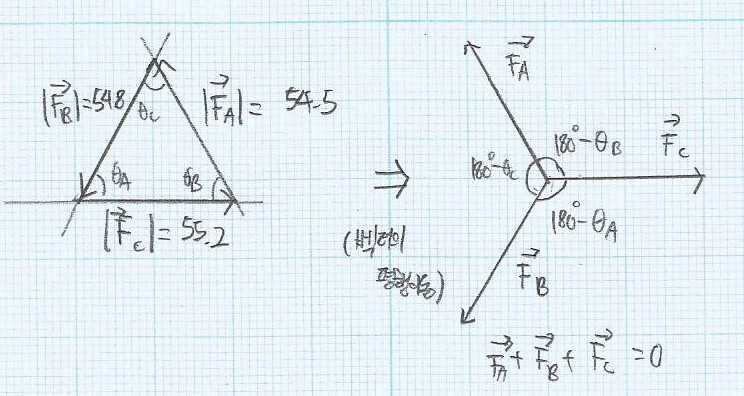 |F⃗_B|=548
θc
|F⃗_A|= 54.5
θA
θB
|F⃗_c|= 55.2
⇒
(벡터의
평행이동)
F⃗_A
180°-θ_B
F⃗_c
180°-θc
180°-θ_A
F⃗_B
F⃗_A + F⃗_B + F⃗_c = 0